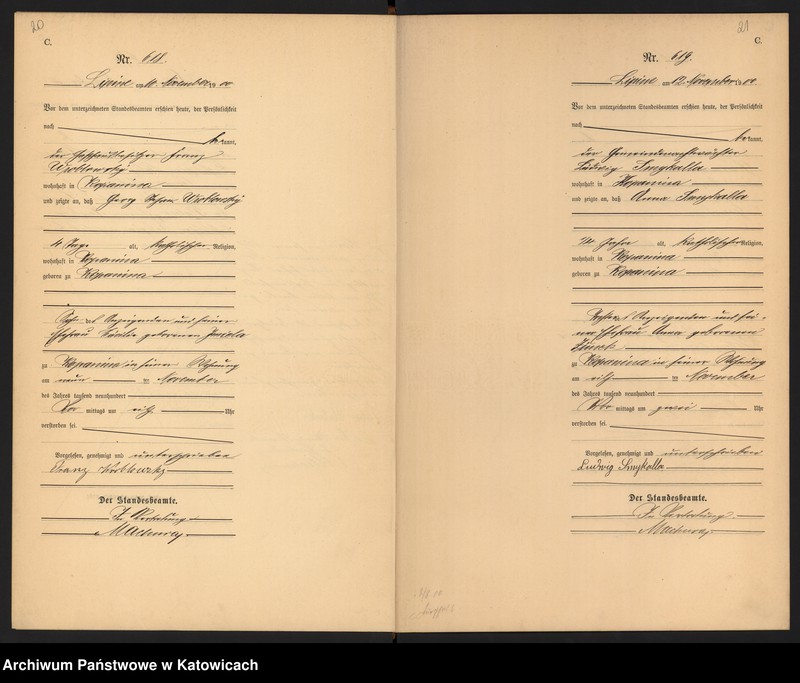 20
C.
Nr. 618.
Lipine am 10. November 1900
Vor dem unterzeichneten Standesbeamten erschien heute, der Persönlichkeit
nach
kannt,
der Franz
Wroblowsky
wohnhaft in Kopanina
und zeigte an, daß Georg Wroblowsky
4 Tage alt, katholischer Religion,
wohnhaft in Kopanina
geboren zu Kopanina
Sohn des Anzeigenden und seiner
Ehefrau geborenen
zu Kopanina in seiner Wohnung
am neun ten November
des Jahres tausend neunhundert
Vor mittags um elf Uhr
verstorben sei.
Vorgelesen, genehmigt und unterschrieben
Franz Wroblowsky
Der Standesbeamte.
In Vertretung
21
C.
Nr. 619.
Lipine am 12. November 1900
Vor dem unterzeichneten Standesbeamten erschien heute, der Persönlichkeit
nach
be kannt,
der Gemeindenachtwächter
Ludwig Smykalla
wohnhaft in Kopanina
und zeigte an, daß Anna Smykalla
Jahre alt, katholischer Religion,
wohnhaft in Kopanina
geboren zu Kopanina
Tochter des Anzeigenden und sei-
ner Ehefrau Anna geborenen
zu Kopanina in seiner Wohnung
am elf ten November
des Jahres tausend neunhundert
mittags um zwei Uhr
verstorben sei.
Vorgelesen, genehmigt und unterschrieben
Ludwig Smykalla
Der Standesbeamte.
In Vertretung
Archiwum Państwowe w Katowicach